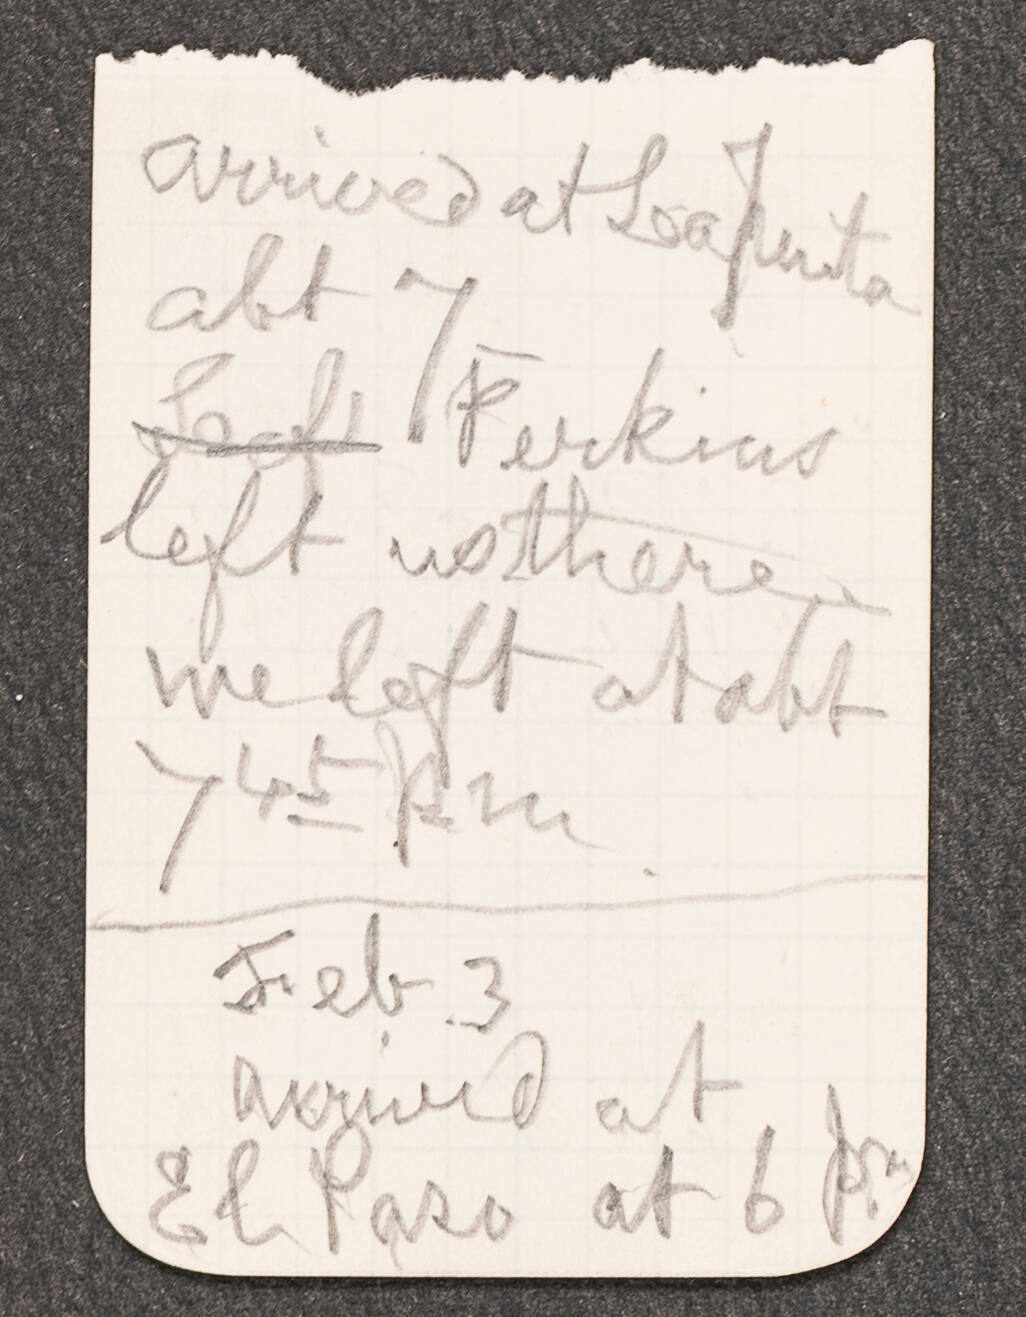 arrived at La Junta
abt 7
Left Perkins
left us there
we left at abt
7 45 pm.
Feb 3
arrived at
El Paso at 6 pm